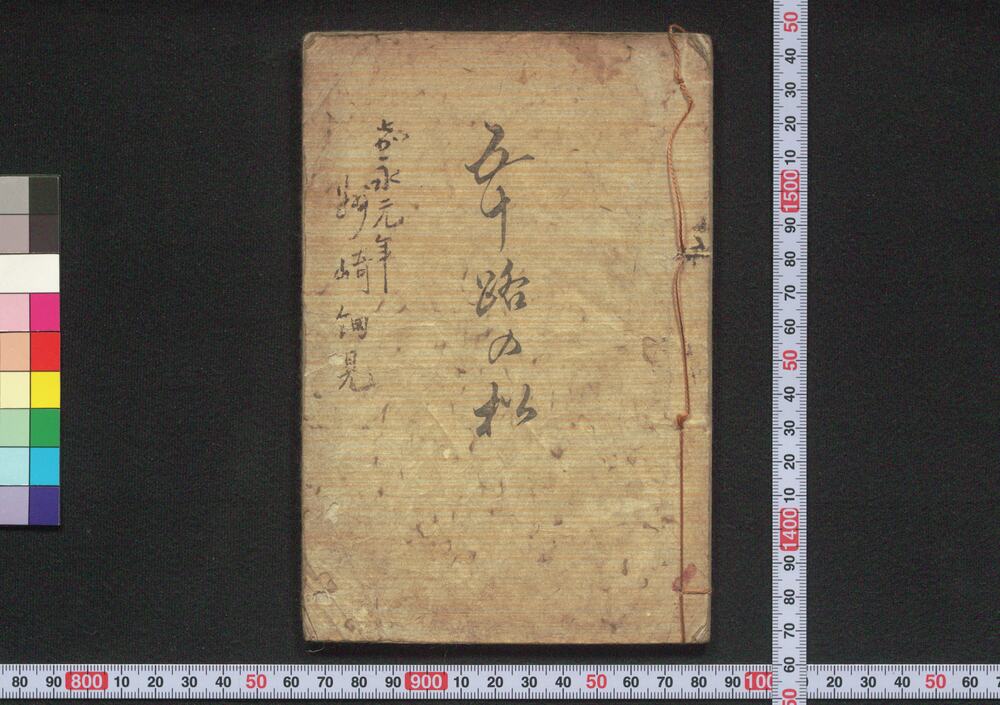 五十路の松
嘉永元年
崎細見
50 40 30 20 10 1500 90 80 70 60 50 40 30 20 10 1400 90 80 70 60 50
80 90 800 10 20 30 40 50 60 70 80 90 900 10 20 30 40 50 60 70 80 90 100 20 30 40 50 60